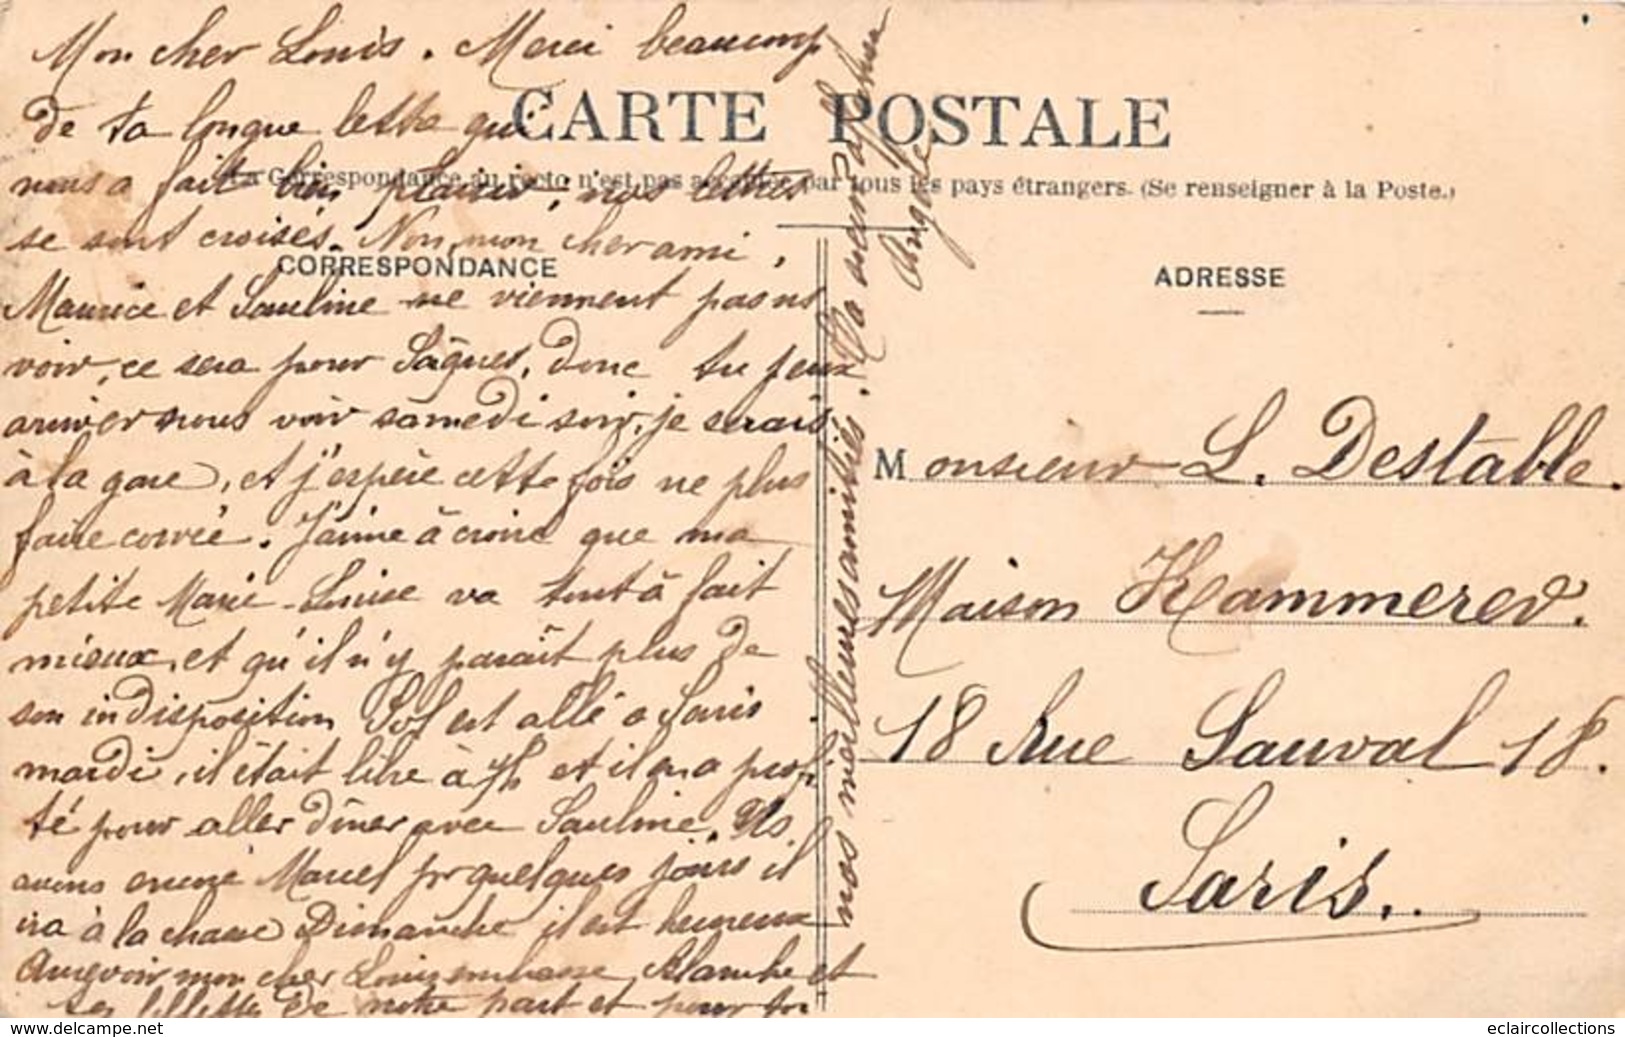 Mon cher Louis. Merci beaucoup
de ta longue lettre qui
nous a fait bien plaisir, nos lettres
se sont croisés. Non, mon cher ami,
Maurice et Pauline ne viennent pas ns
voir, ce sera pour Pâques, donc tu peux
arriver nous voir samedi soir, je serais
à la gare, et j'espère cette fois ne plus
faire corvée. J'aime à croire que ma
petite Marie-Louise va tout à fait
mieux, et qu'il n'y parait plus de
son indisposition Pol est allé a Paris
mardi, il était libre à 7h et il en a profi
té pour aller diner avec Pauline. Ns
avons Marcel pr quelques jours il
ira à la chasse Dimanche il est heureux
Aurevoir mon cher Louis embrasse Blanche et
ses fillettes de notre part et pour toi
nos meilleures amitiés. Ta sœur affectionnée
Angèle
CARTE POSTALE
La Correspondance au recto n'est pas acceptée par tous les pays étrangers. (Se renseigner à la Poste.)
CORRESPONDANCE
ADRESSE
Monsieur L. Destable.
Maison Hammerer.
18 Rue Sauval 18.
Paris.
delcampe.net
eclaircollections